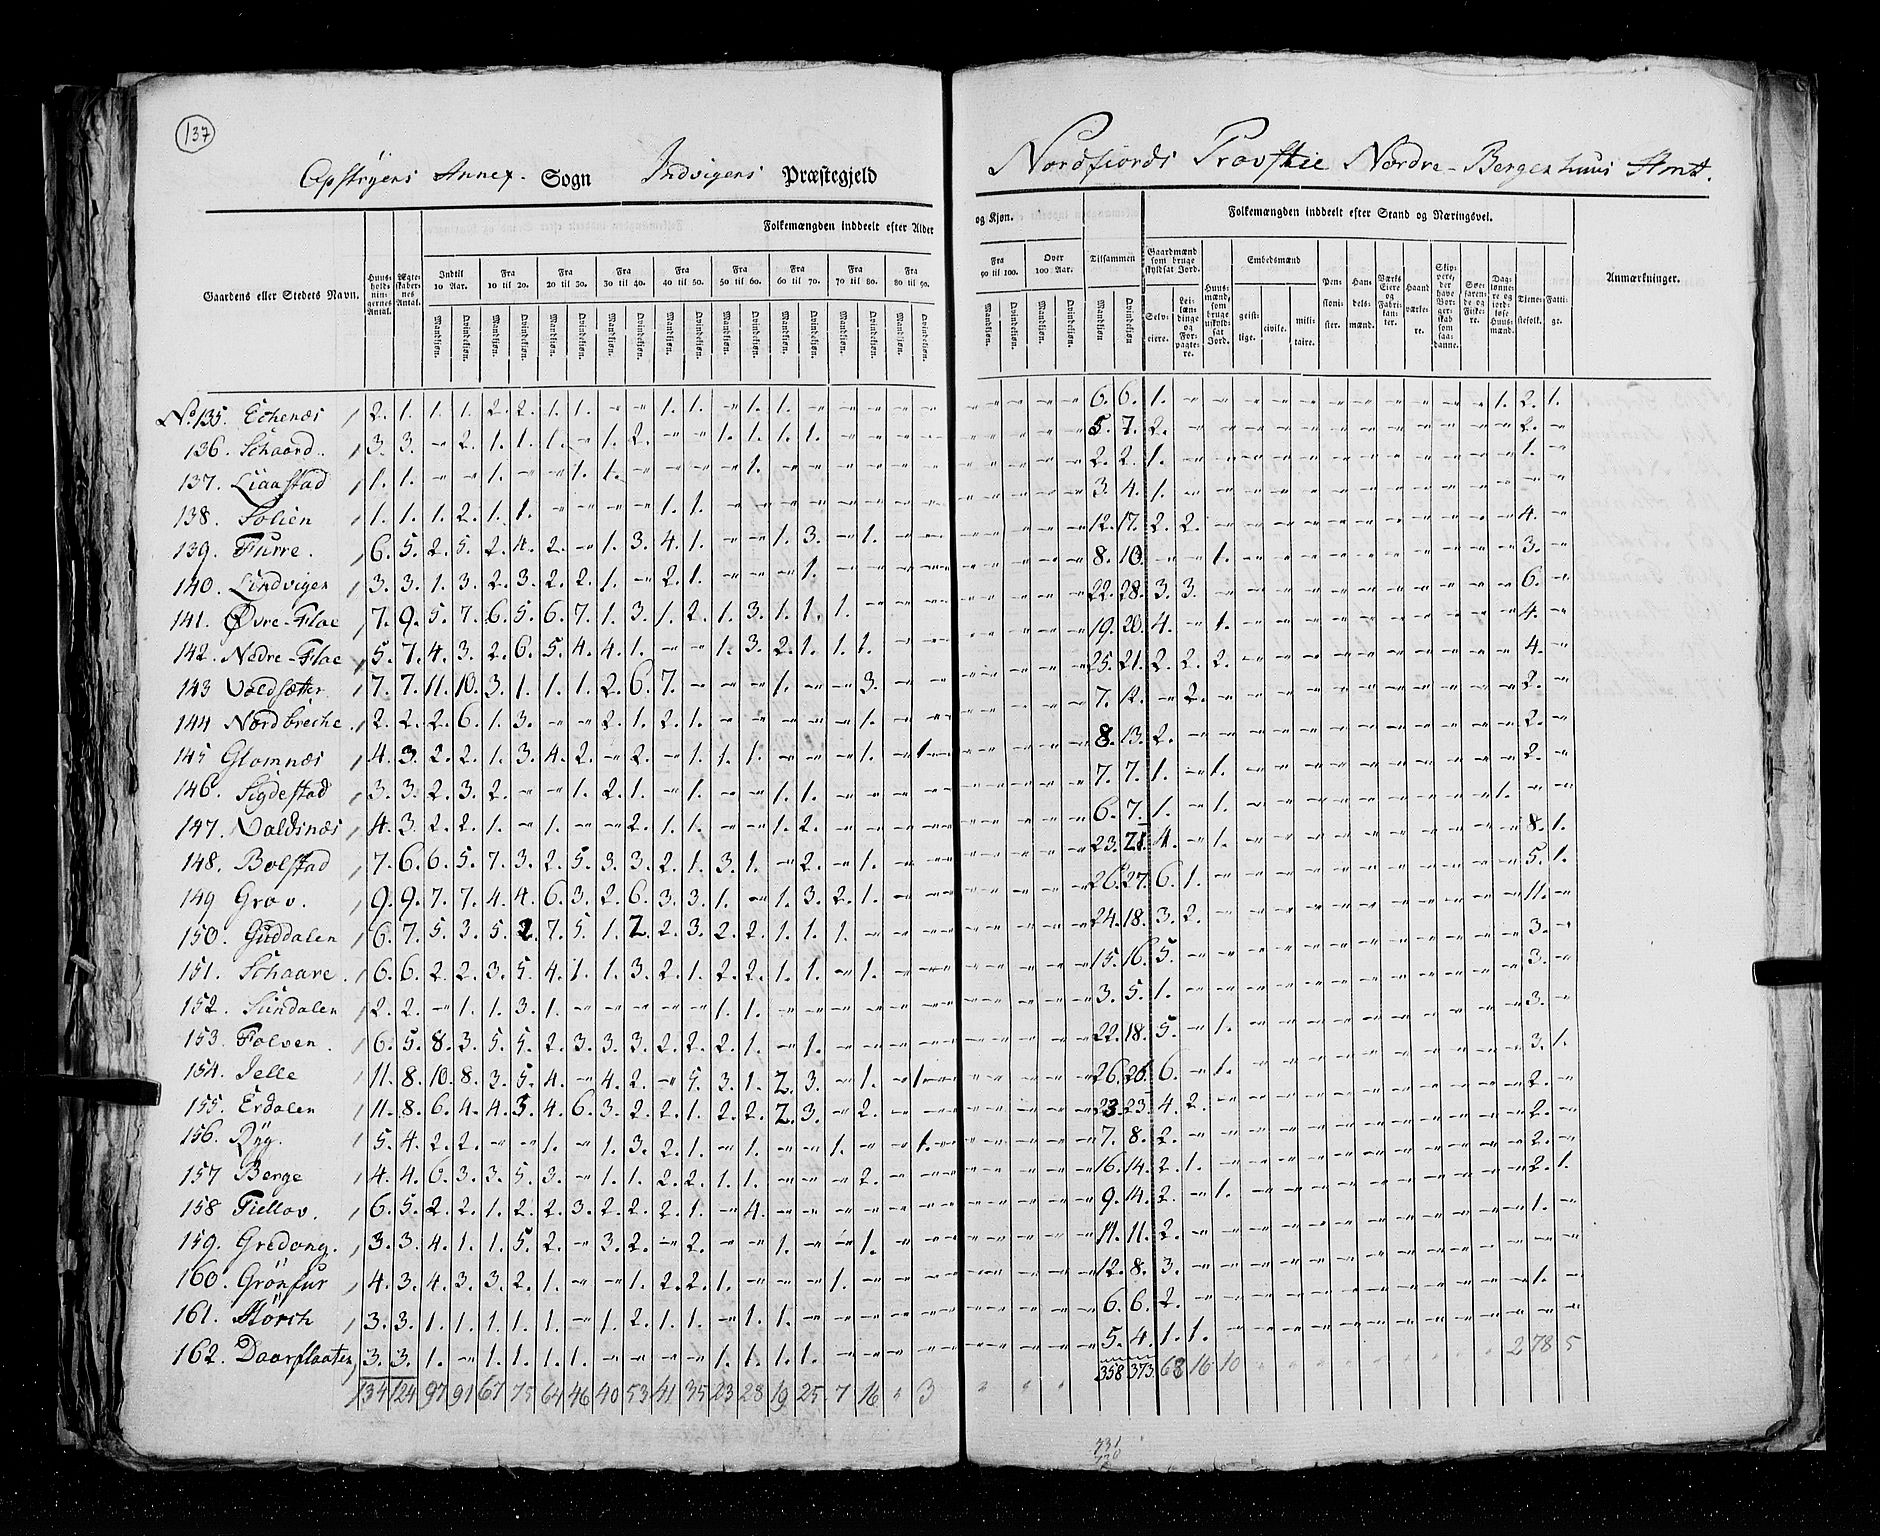 137
Opstryens Annex. Sogn Indvigens Præstegjeld
Nordfiords Provstie Nordre-Bergenhuus Amt.
Gaardens eller Stedets Navn.
Huusholdningernes Antal.
Ægteskabernes Antal.
Folkemængden inddeelt efter Alder
og Kjøn.
Indtil 10 Aar.
Fra 10 til 20.
Fra 20 til 30.
Fra 30 til 40.
Fra 40 til 50.
Fra 50 til 60.
Fra 60 til 70.
Fra 70 til 80.
Fra 80 til 90.
Fra 90 til 100.
Over 100 Aar.
Tilsammen
Mandkjøn. Qvindekjøn.
Folkemængden inddeelt efter Stand og Næringsvei.
Gaardmænd som bruge skyldsat Jord.
Selveiere.
Leilændinge og Forpagtere.
Huusmænd, som bruge uskyldsat Jord.
Embedsmænd
geistlige.
civile.
militaire.
Pensionister.
Handelsmænd.
Værks Eiere og Fabrikanter.
Haandværkere.
Skippere, der have Borgerskab som saadanne.
Søefarende og Fiskere.
Daglønnere og jordløse Huusmænd.
Tjenestefolk.
Fattige.
Anmærkninger.
No. 135. Echenæs 2. 1. 1. 1. 2. 2. 1. 1. - - 1. 1. - 1. 1. - - - - - - - - - 6. 6. 1. - - - - - - - - - - - 1. 2. 1.
136. Schaard. 3. 3. - 2. 1. 1. 1. - 1. 2. - - 1. 1. 1. 1. - - - - - - - - 5. 7. 2. - - - - - - - - - - - - 2. -
137. Liaastad 1. 1. - - 1. - - 1. 1. - - - - 1. - - - - - - - - - - 2. 2. 1. - - - - - - - - - - - - 1. -
138. Solien 1. 1. 1. 2. 1. 1. - - - - 1. 1. - - - - - - - - - - - - 3. 4. 1. - - - - - - - - - - - - - -
139. Flurre. 6. 5. 2. 5. 2. 4. 2. - 1. 3. 4. 1. - - 1. 3. - 1. - - - - - - 12. 17. 2. 2. - - - - - - - - - - - 4. -
140. Lindvigen 3. 3. 1. 3. 2. 3. 2. 2. 1. - 2. 1. - - - 1. - - - - - - - - 8. 10. - - 1. - - - - - - - - - - 3. -
141. Øvre-Floe 7. 9. 5. 7. 6. 5. 6. 7. 1. 3. 1. 2. 1. 3. 1. 1. 1. - - - - - - - 22. 28. 3. 3. - - - - - - - - - - - 6. -
142. Nedre-Floe 5. 7. 4. 3. 2. 6. 5. 4. 4. 1. - - 1. 3. 2. 1. 1. 1. - - - - - - 19. 20. 4. - 1. - - - - - - - - - - 4. -
143 Voldsætter 7. 7. 11. 10. 3. 1. 1. 1. 2. 6. 7. - - - 1. - - 3. - - - - - - 25. 21. 2. 2. 2. - - - - - - - - - - 4. -
144 Nordbreche. 2. 2. 2. 6. 1. 3. - - 2. 1. 2. 1. - - - - - 1. - - - - - - 7. 12. - 2. - - - - - - - - - - - 2. -
145 Glomnæs 4. 3. 2. 2. 1. 3. 4. 2. - 2. - 1. 1. 1. - - - 1. - 1. - - - - 8. 13. 2. - - - - - - - - - - - - 2. -
146. Sigdestad 3. 3. 2. 3. 2. - - 1. 2. 1. - 1. - - 1. 1. - - - - - - - - 7. 7. 1. - 1. - - - - - - - - - - 2. -
147. Valdsnæs 4. 3. 2. 2. 1. - 1. - - 2. 1. 1. - - 1. 2. - - - - - - - - 6. 7. 1. - 1. - - - - - - - - - 1. - -
148. Bolstad 7. 6. 6. 5. 7. 3. 2. 5. 3. 3. 2. 1. 3. 1. - 2. - 1. - - - - - - 23. 21. 4. - 1. - - - - - - - - - - 8. 1.
149 Grov. 9. 9. 7. 7. 4. 4. 6. 3. 2. 6. 3. 3. 1. - 1. 3. 2. 1. - - - - - - 26. 27. 6. 1. - - - - - - - - - - - 5. 1.
150. Guddalen 6. 7. 5. 3. 5. 2. 7. 5. 1. 2. 2. 3. 2. 2. 1. 1. 1. - - - - - - - 24. 18. 3. 2. - - - - - - - - - - - 11. -
151. Schaare. 6. 6. 2. 2. 3. 5. 4. 1. 1. 3. 2. 1. 2. 2. 1. 1. - 1. - - - - - - 15. 16. 5. - - - - - - - - - - - - 3. -
152. Sundalen 2. 2. - 1. 1. 3. 1. - - - - - 1. 1. - - - - - - - - - - 3. 5. 1. - - - - - - - - - - - - 3. -
153. Folven. 6. 5. 8. 3. 5. 5. 2. 3. 3. 3. 2. 2. 2. 1. - 1. - - - - - - - - 22. 18. 5. - 1. - - - - - - - - - - 3. -
154. Jelle 11. 8. 10. 8. 3. 5. 4. - 4. 2. - 5. 3. 1. 2. 3. - 1. - 1. - - - - 26. 26. 6. - 1. - - - - - - - - - - 3. 1.
155. Erdalen 11. 8. 6. 4. 4. 3. 4. 6. 3. 2. 2. 1. 2. 2. 2. 3. - 2. - - - - - - 23. 23. 4. 2. - - - - - - - - - - - 2. -
156. Ryg. 5. 4. 2. 2. - - 1. - 1. 3. 2. 1. - 1. - - 1. - - 1. - - - - 7. 8. 2. - - - - - - - - - - - - 2. -
157 Berge 4. 4. 6. 3. 3. 5. 3. - 1. 1. 2. 2. 1. 1. - - - 2. - - - - - - 16. 14. 2. 1. - - - - - - - - - - - 2. -
158 Tiellov. 6. 5. 2. 2. 1. 2. 2. 3. 2. 2. 2. 1. - 4. - - - - - - - - - - 9. 14. 2. - 1. - - - - - - - - - - 2. 1.
159. Gredong. 3. 3. 4. 1. 1. 5. 2. - 3. 2. - 2. - - 1. - - 1. - - - - - - 11. 11. 2. - - - - - - - - - - - - 1. -
160. Grönfur 4. 3. 4. 3. 3. 2. 1. - - 1. 2. 2. 1. - - - 1. - - - - - - - 12. 8. 3. - - - - - - - - - - - - - -
161. Störch 3. 3. 1. 1. 1. 1. 1. - 1. 2. 1. 1. - 1. 1. - - - - - - - - - 6. 6. 2. - - - - - - - - - - - - 1. -
162. Daarflaaten 3. 3. 1. - 1. 1. 1. 1. - - - - 1. 1. 1. 1. - - - - - - - - 5. 4. 1. 1. - - - - - - - - - - - - -
134 124 97 91 67 75 64 46 40 53 41 35 23 28 19 25 7 16 " 3 " " " 358 373 68 16 10 " " " " " " " " " 2 78 5
731